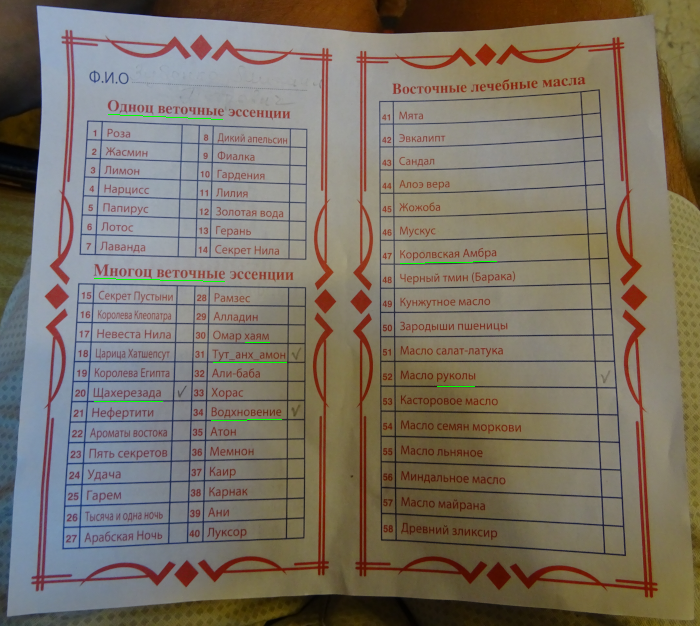 Ф.И.О
Одноц веточные эссенции
1 Роза
2 Жасмин
3 Лимон
4 Нарцисс
5 Папирус
6 Лотос
7 Лаванда
8 Дикий апельсин
9 Фиалка
10 Гардения
11 Лилия
12 Золотая вода
13 Герань
14 Секрет Нила
Многоц веточные эссенции
15 Секрет Пустыни
16 Королева Клеопатра
17 Невеста Нила
18 Царица Хатшепсут
19 Королева Египта
20 Щахерезада ✓
21 Нефертити
22 Ароматы востока
23 Пять секретов
24 Удача
25 Гарем
26 Тысяча и одна ночь
27 Арабская Ночь
28 Рамзес
29 Алладин
30 Омар хаям
31 Тут_анх_амон ✓
32 Али-баба
33 Хорас
34 Водхновение ✓
35 Атон
36 Мемнон
37 Каир
38 Карнак
39 Ани
40 Луксор
Восточные лечебные масла
41 Мята
42 Эвкалипт
43 Сандал
44 Алоэ вера
45 Жожоба
46 Мускус
47 Королвская Амбра
48 Черный тмин (Барака)
49 Кунжутное масло
50 Зародыши пшеницы
51 Масло салат-латука
52 Масло руколы ✓
53 Касторовое масло
54 Масло семян моркови
55 Масло льняное
56 Миндальное масло
57 Масло майрана
58 Древний зликсир